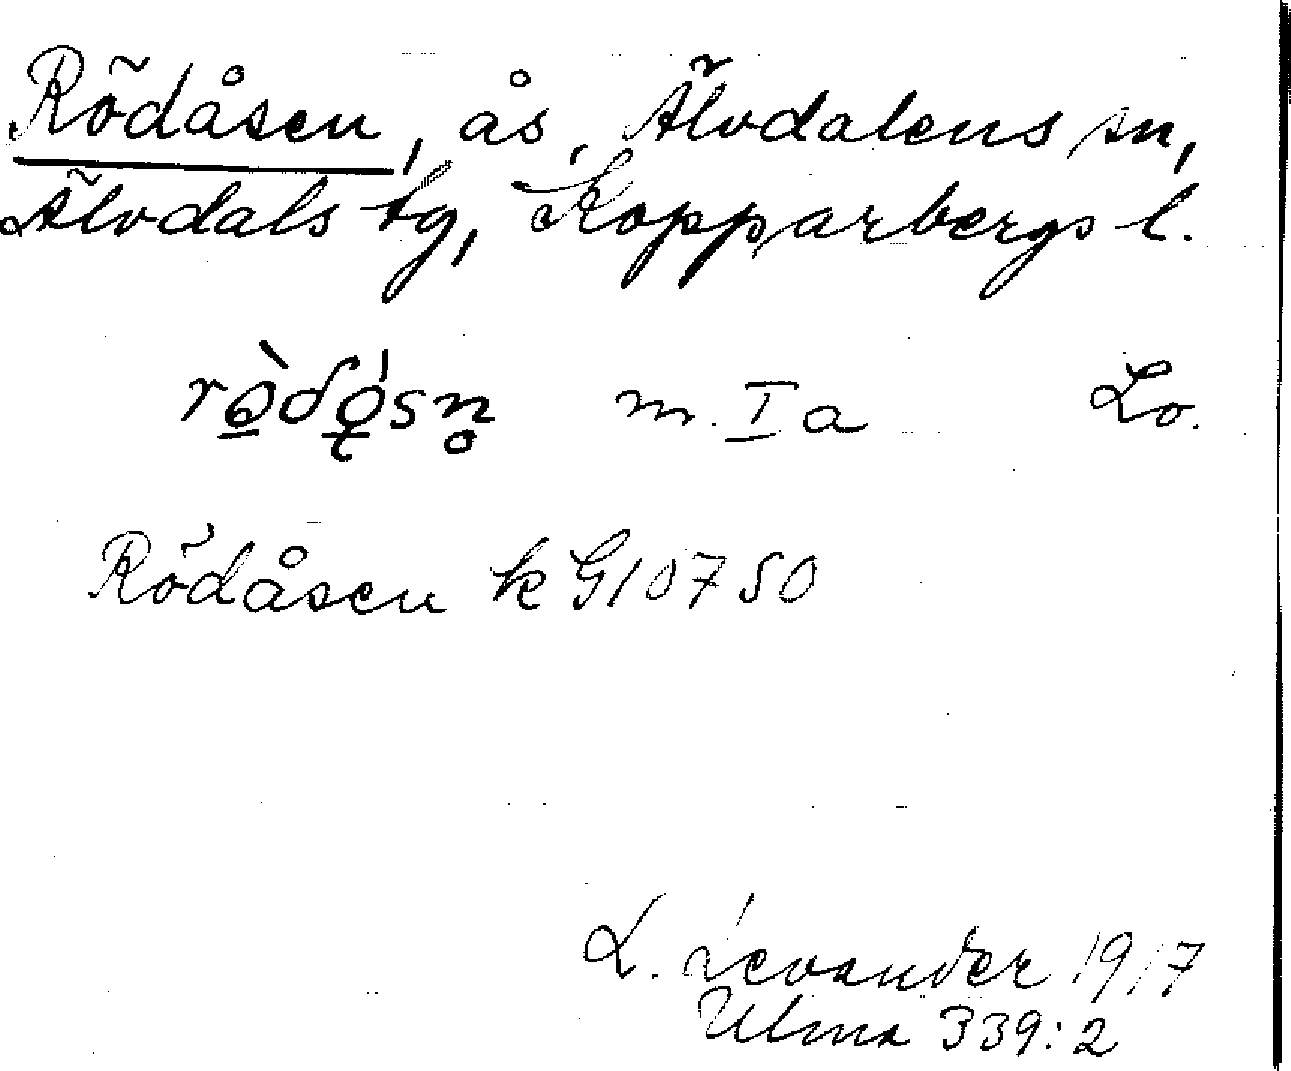 Rödåsen, ås, Älvdalens sn,
Älvdals tg, Kopparbergs l.
rö̱̀dǫ̱́sn̥ m. I a Lo.
Rödåsen k G10750
L. Levander 1917
Ulma 339:2